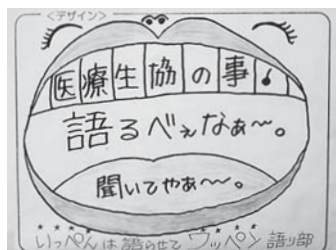 <デザイン>
医療生協の事♪
語るべぇなぁ〜。
聞いてやぁ〜〜。
いっぺんは語らせてウッペン語り部